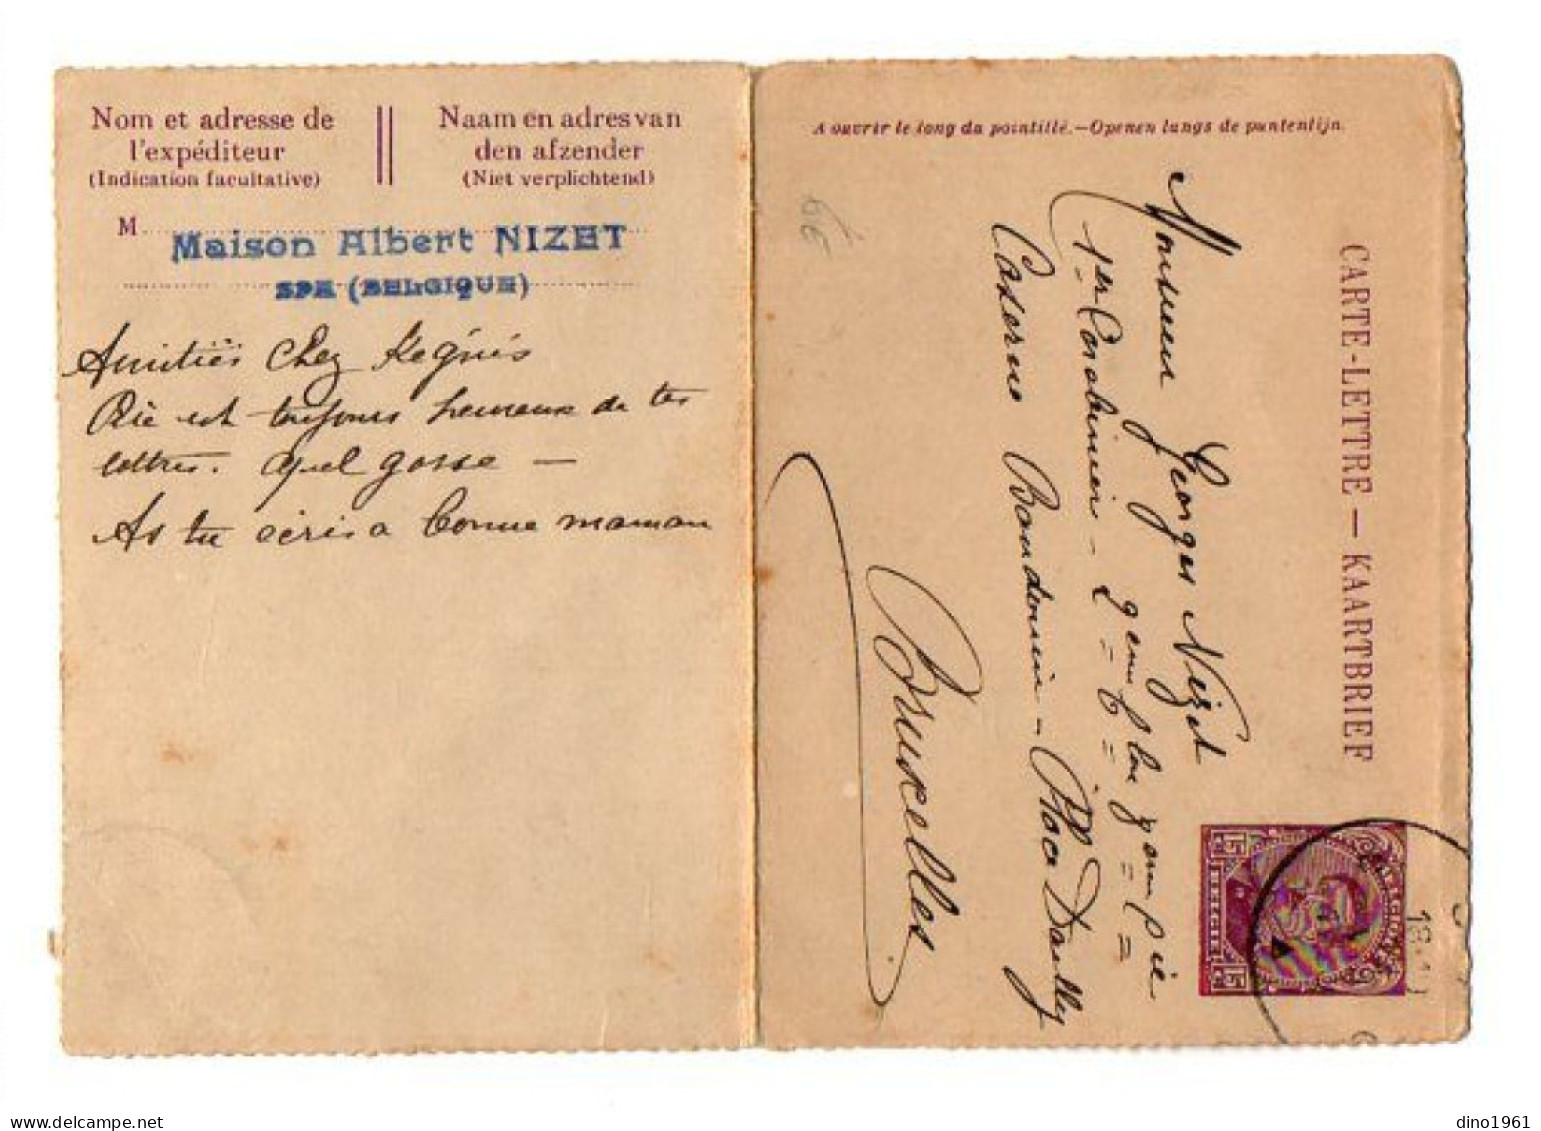 Nom et adresse de
l'expéditeur
(Indication facultative)
Naam en adres van
den afzender
(Niet verplichtend)
M
Maison Albert NIZET
SPA (BELGIQUE)
Amitiés chez
est toujours heureuse de tes
lettres. quel gosse —
As tu écris a bonne maman
A ouvrir le long du pointillé.—Openen langs de puntenlijn.
CARTE-LETTRE — KAARTBRIEF
Monsieur Georges Nizet
1er Carabinier - 9eme Cie
Caserne Baudouin - Place Dailly
Bruxelles
15 BELGIE 15
dino1961
delcampe.net